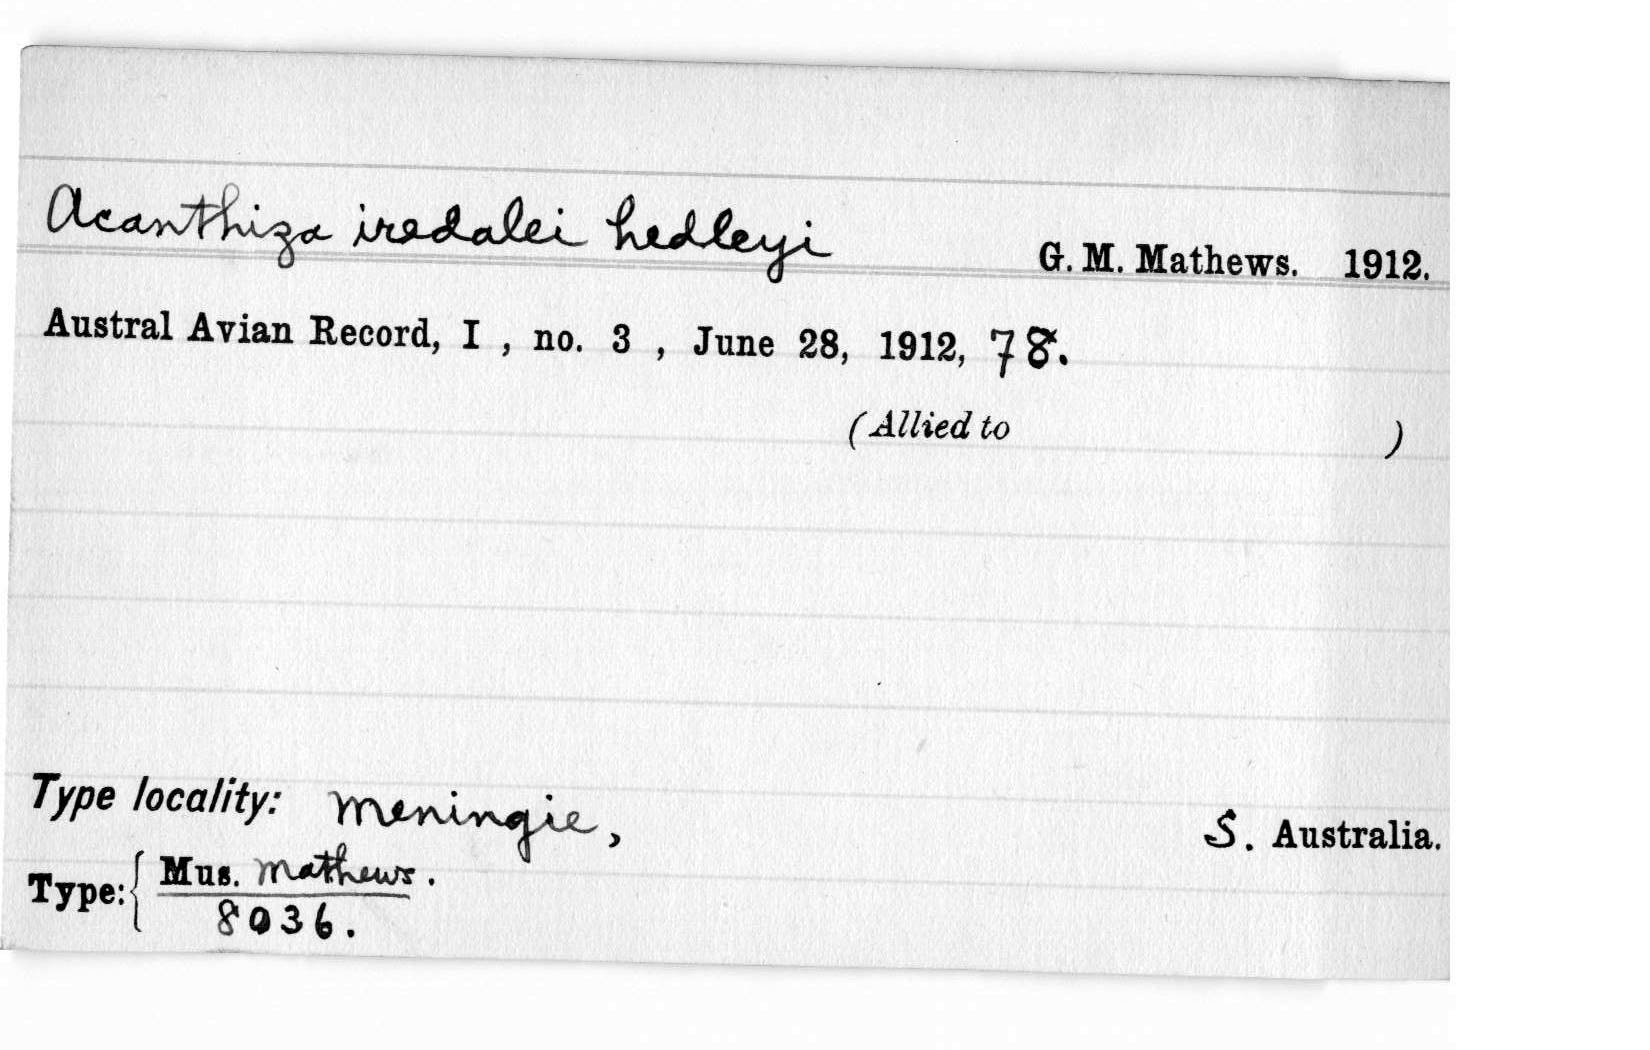 Acanthiza iredalei hedleyi G. M. Mathews. 1912.
Austral Avian Record, I , no. 3 , June 28, 1912, 78.
(Allied to )
Type locality: Meningie, S. Australia.
Type: { Mus. Mathews.
8036.